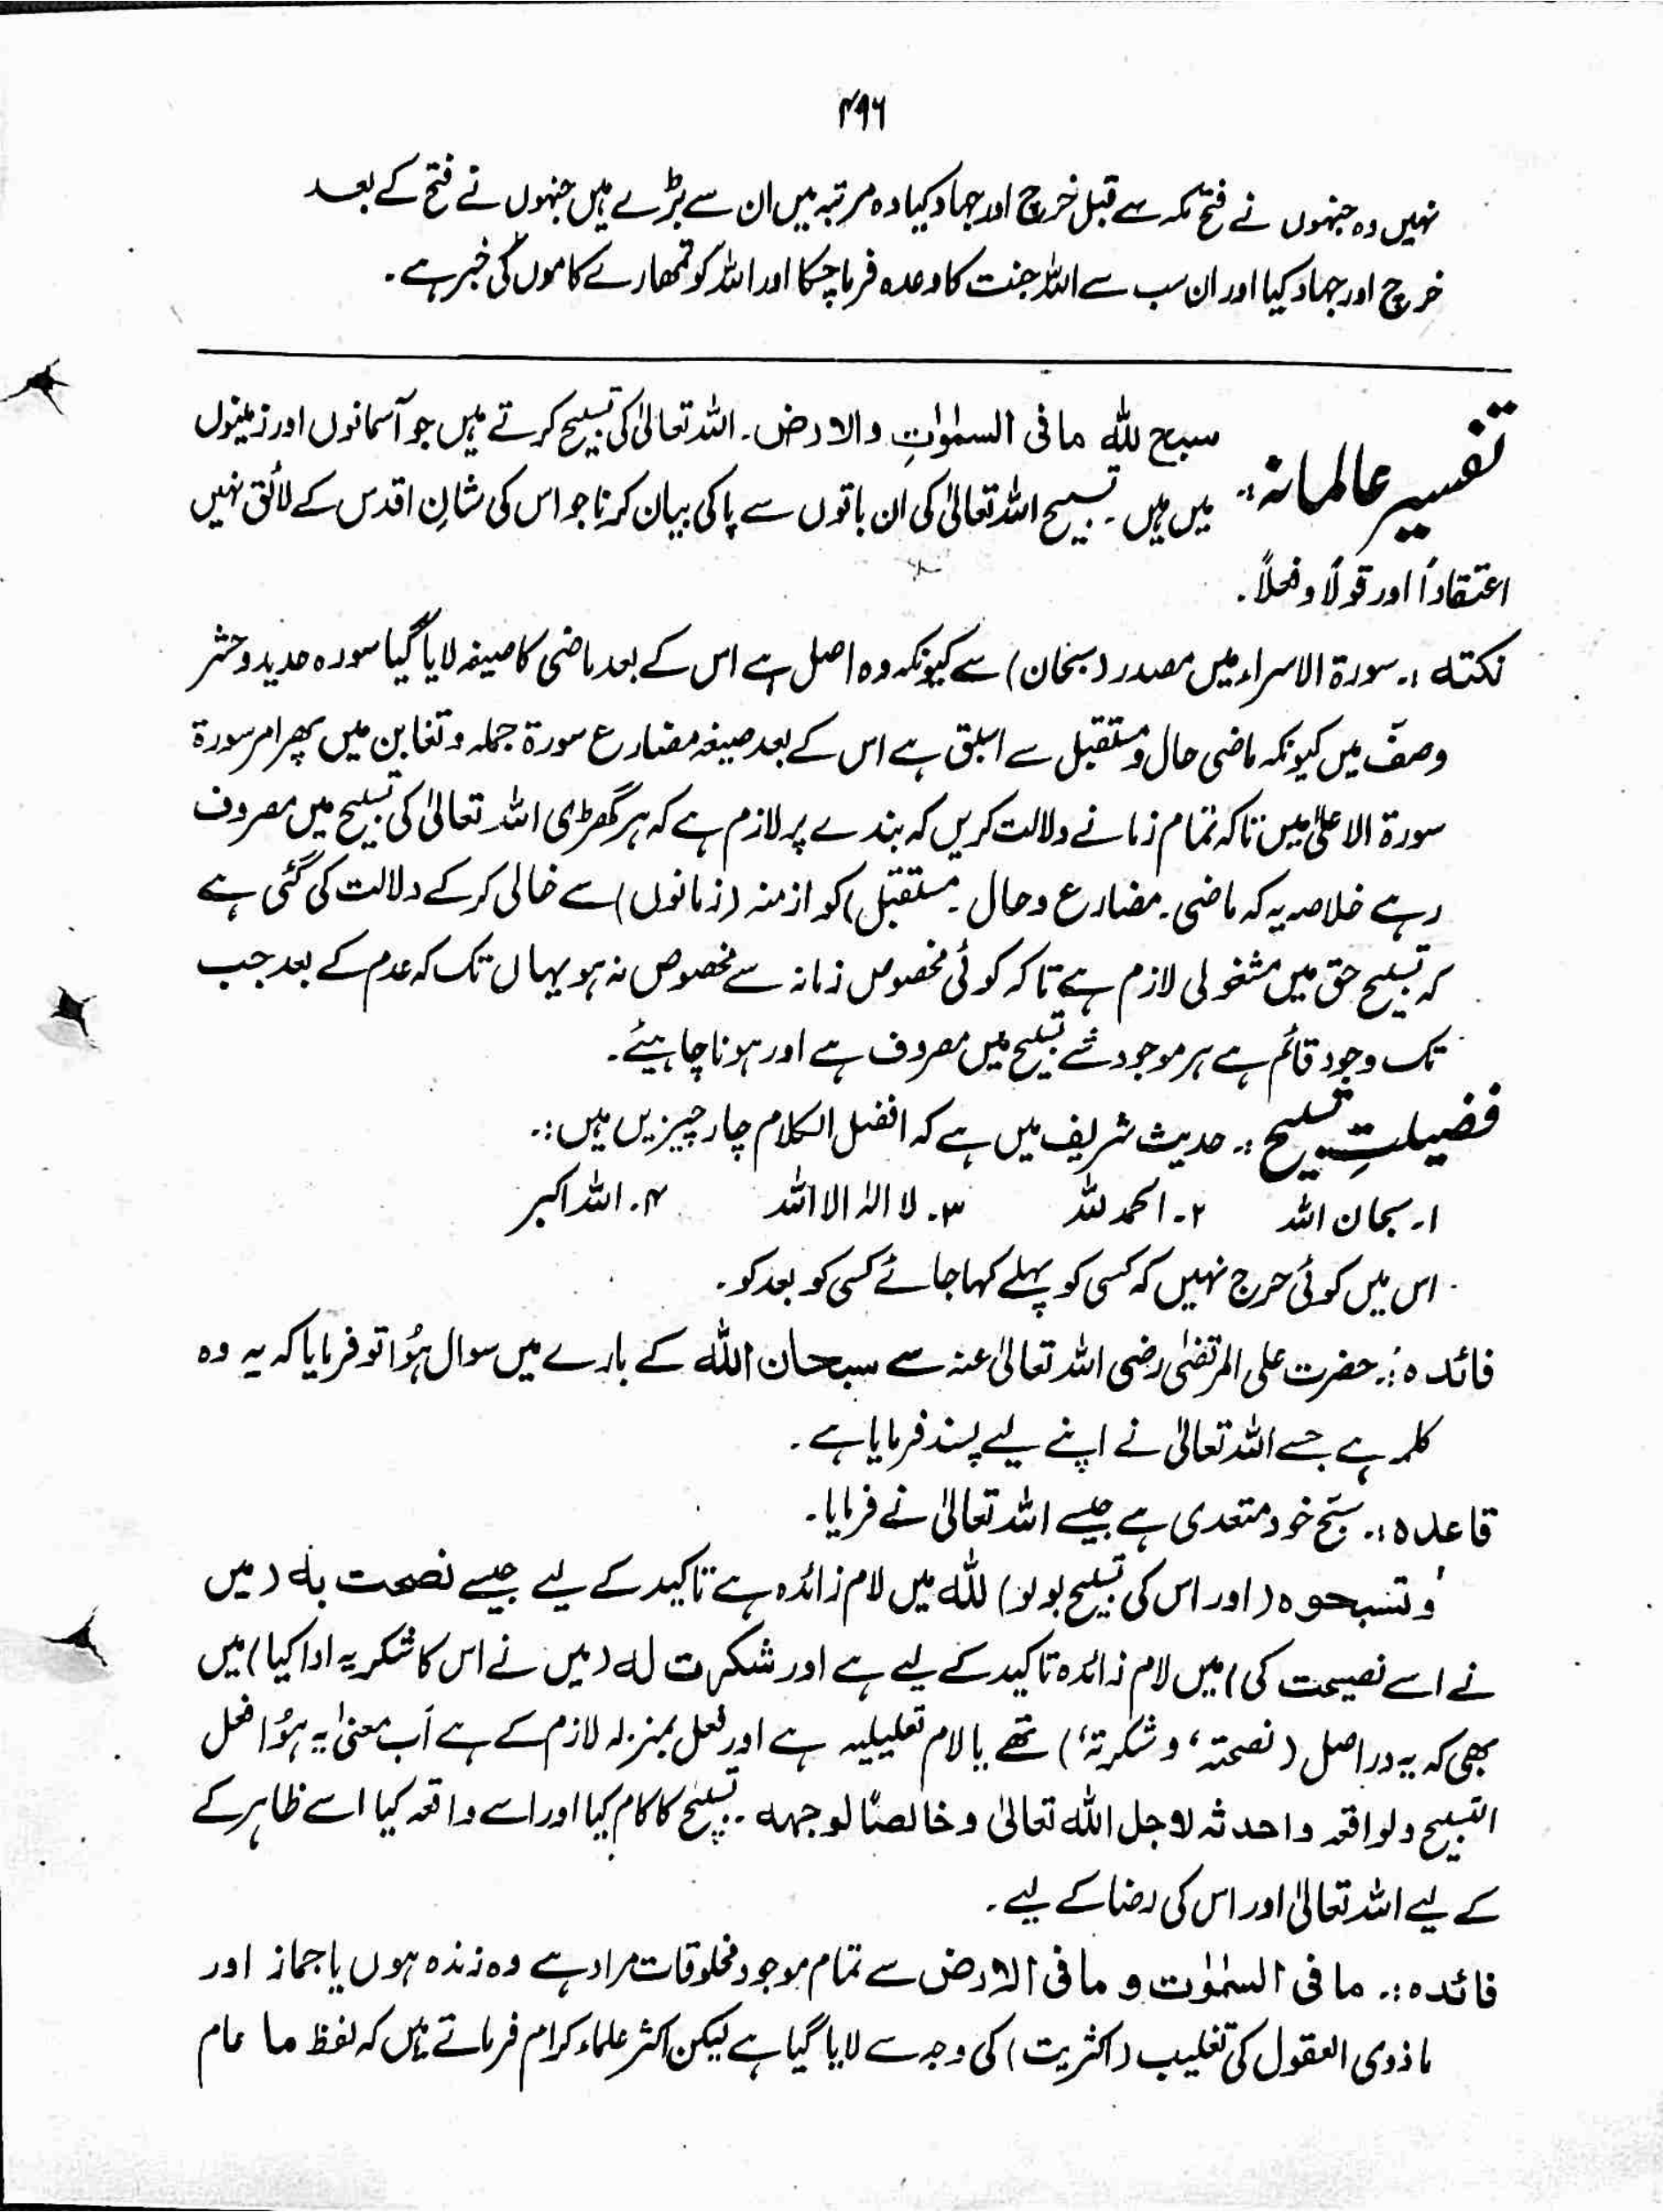 ۴۹۶
نہیں وہ جنہوں نے فتح مکہ سے قبل خرچ اور جہاد کیا وہ مرتبہ میں ان سے بڑے ہیں جنہوں نے فتح کے بعد
خرچ اور جہاد کیا اور ان سب سے اللہ جنت کا وعدہ فرما چکا اور اللہ کو تمھارے کاموں کی خبر ہے ۔
تفسیر عالمانہ :۔ سبح للہ ما فی السمٰوٰتِ والارض ۔ اللہ تعالیٰ کی تسبیح کرتے ہیں جو آسمانوں اور زمینوں
میں ہیں ۔ تسبیح اللہ تعالیٰ کی ان باتوں سے پاکی بیان کرنا جو اس کی شانِ اقدس کے لائق نہیں
اعتقاداً اور قولاً و فعلاً ۔
نکتہ :۔ سورۃ الاسراء میں مصدر (سبحان) سے کیونکہ وہ اصل ہے اس کے بعد ماضی کا صیغہ لایا گیا سورہ حدید و حشر
وصفّ میں کیونکہ ماضی حال و مستقبل سے اسبق ہے اس کے بعد صیغہ مضارع سورۃ جملہ و تغابن میں پھر امر سورۃ
سورۃ الاعلیٰ میں تاکہ تمام زمانے دلالت کریں کہ بندے پر لازم ہے کہ ہر گھڑی اللہ تعالیٰ کی تسبیح میں مصروف
رہے خلاصہ یہ کہ ماضی ۔ مضارع و حال ۔ مستقبل) کو ازمنہ (زمانوں) سے خالی کر کے دلالت کی گئی ہے
کہ تسبیح حق میں مشغولی لازم ہے تاکہ کوئی مخصوص زمانہ سے مخصوص نہ ہو یہاں تک کہ عدم کے بعد جب
تک وجود قائم ہے ہر موجود شے تسبیح میں مصروف ہے اور ہونا چاہیئے ۔
فضیلتِ تسبیح :۔ حدیث شریف میں ہے کہ افضل الکلام چار چیزیں ہیں :۔
۱۔ سبحان اللہ ۲۔ الحمد للہ ۳۔ لا الٰہ الا اللہ ۴۔ اللہ اکبر
اس میں کوئی حرج نہیں کہ کسی کو پہلے کہا جائے کسی کو بعد کو ۔
فائدہ :۔ حضرت علی المرتضیٰ رضی اللہ تعالیٰ عنہ سے سبحان اللہ کے بارے میں سوال ہُوا تو فرمایا کہ یہ وہ
کلمہ ہے جسے اللہ تعالیٰ نے اپنے لیے پسند فرمایا ہے ۔
قاعدہ :۔ سبّح خود متعدی ہے جیسے اللہ تعالیٰ نے فرمایا ۔
وتسبحوہ (اور اس کی تسبیح بولو) للہ میں لام زائدہ ہے تاکید کے لیے جیسے نصحت بلہ (میں
نے اسے نصیحت کی) میں لام زائدہ تاکید کے لیے ہے اور شکرت لہ (میں نے اس کا شکریہ ادا کیا) میں
بھی کہ یہ دراصل (نصحتہ، و شکرتہ،) تھے یا لام تعلیلیہ ہے اور فعل بمنزلہ لازم کے ہے اَب معنیٰ یہ ہُوا فعل
التسبیح ولواقعہ واحدثہ لاجل اللہ تعالیٰ وخالصًا لوجہہ ۔ تسبیح کا کام کیا اور اسے واقعہ کیا اسے ظاہر کے
کے لیے اللہ تعالیٰ اور اس کی رضا کے لیے ۔
فائدہ :۔ ما فی السمٰوٰت و ما فی الارض سے تمام موجود مخلوقات مراد ہے وہ زندہ ہوں یا جماز اور
ما ذوی العقول کی تغلیب (اکثریت) کی وجہ سے لایا گیا ہے لیکن اکثر علماء کرام فرماتے ہیں کہ لفظ ما عام